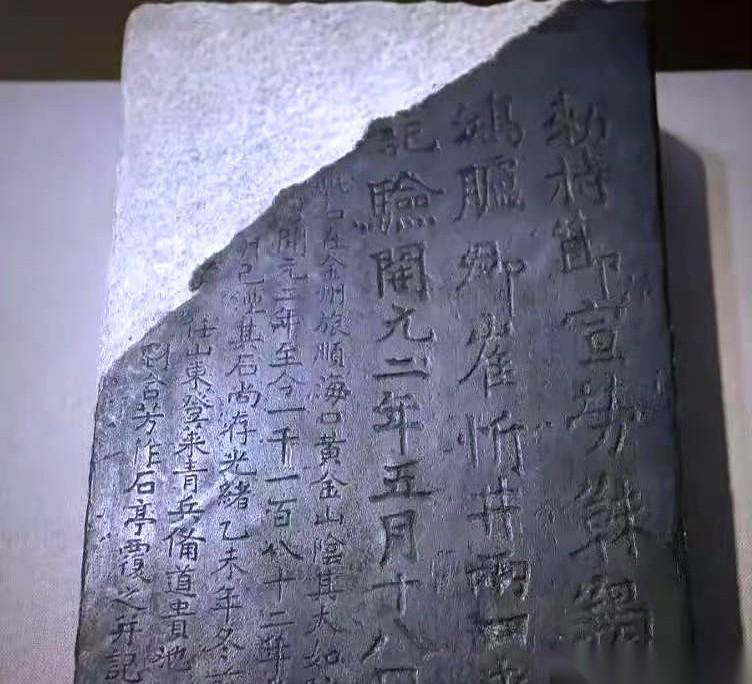 勅持節宣勞靺鞨
鴻臚卿崔忻井兩口
記驗開元二年五月十八日
石在金州旅順海口黃金山陰其大如
開元二年至今一千一百八十二年
井已湮其石尚存光緒乙未年冬
任山東登萊青兵備道貴池
劉含芳作石亭覆之并記